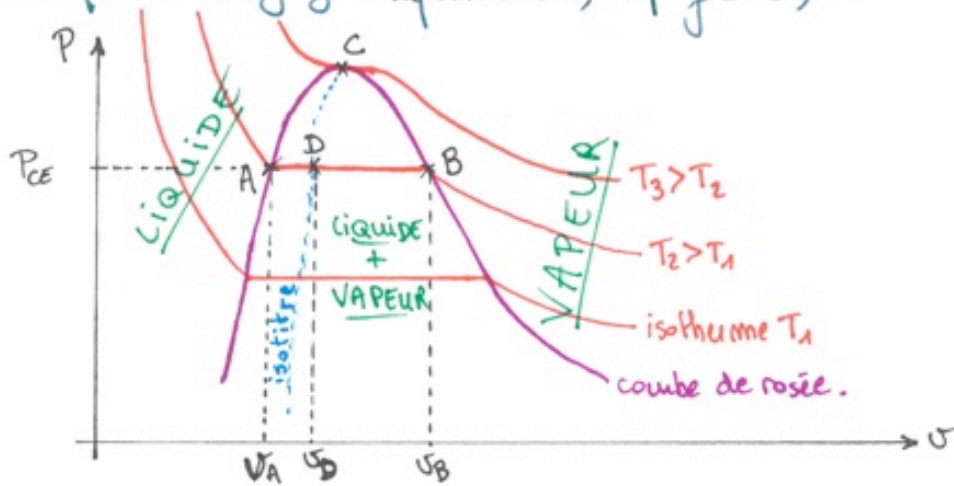 P
C
LIQUIDE
D
P_CE
A
B
VAPEUR
T₃ > T₂
LIQUIDE
+
VAPEUR
T₂ > T₁
isotitre
isotherme T₁
courbe de rosée.
v
v_A
v_D
v_B